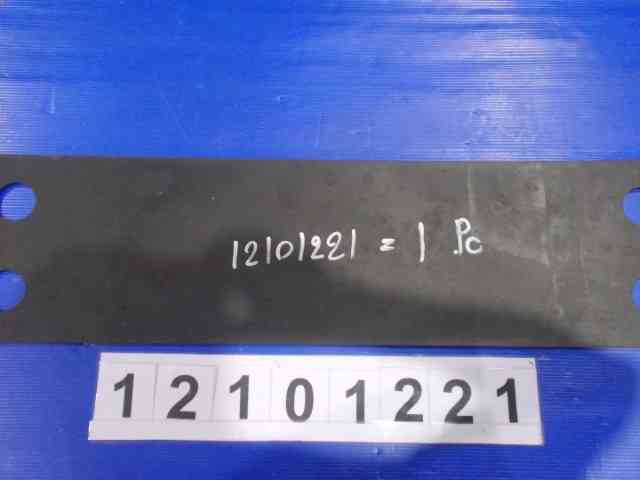 12101221 = 1 Pc
12101221